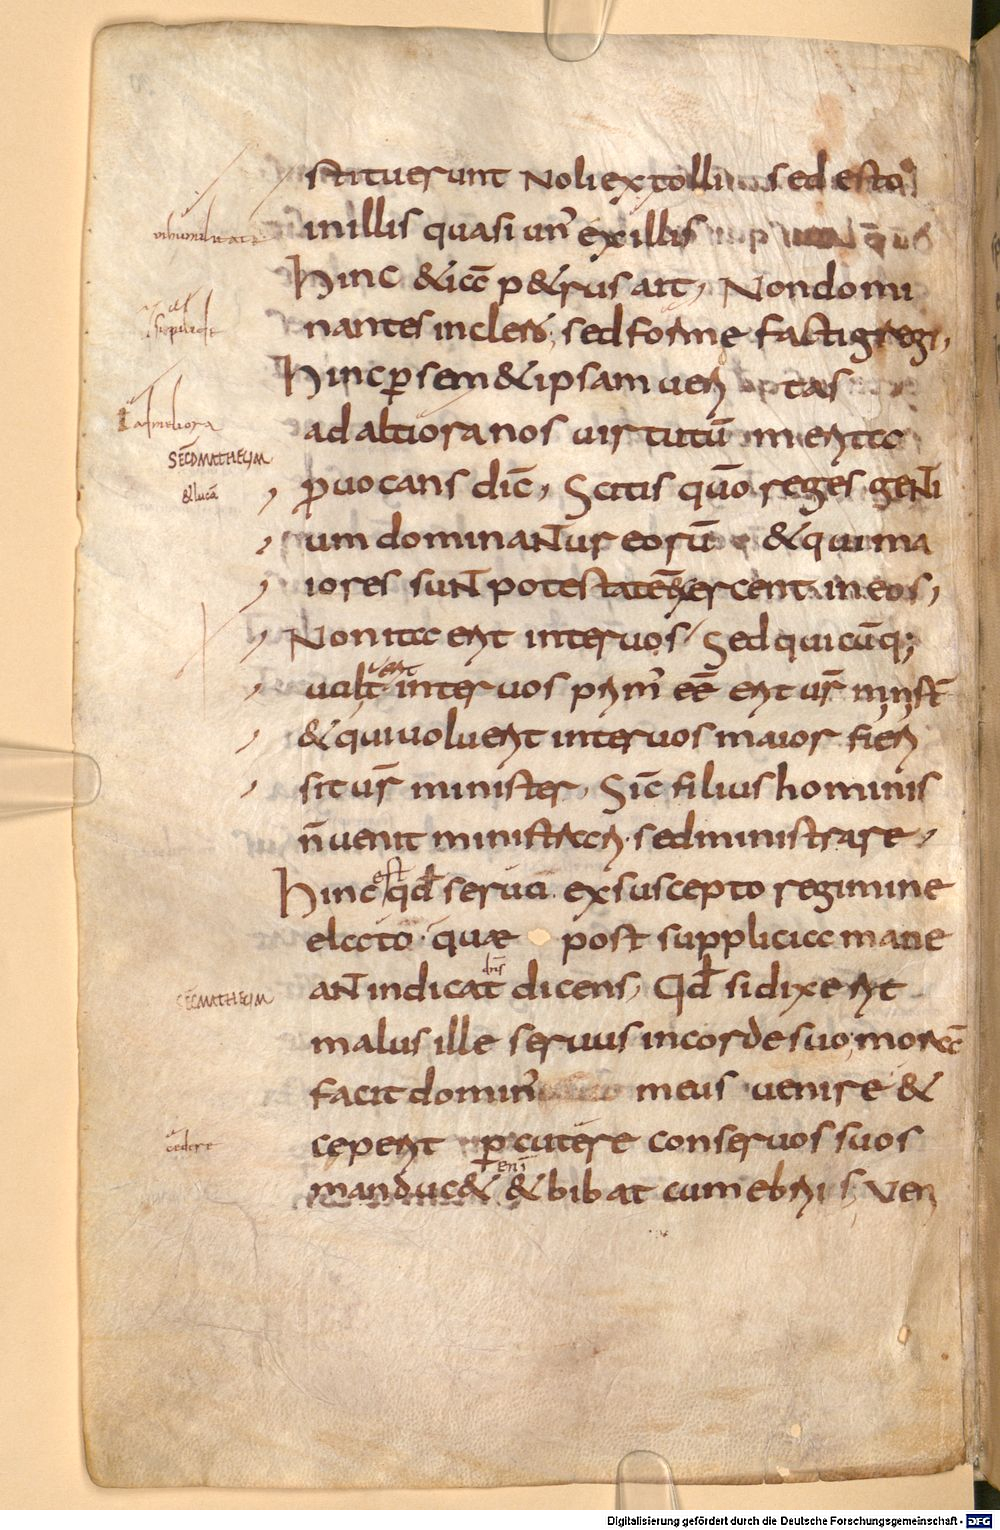 stituerunt Noli extolli sed esto
in humilitate
in illis quasi un' ex illis
hinc & icc p&rus ait, Non domi
nantes in cleris, sed forme facti gregi,
hinc p sem&ipsam ueri tas
ad altiora nos uirtutū merita
l ad meliora
SECD MATHEUM
puocans dic̄, Scitis quō reges genti
& lucā
um dominantur eorū & qui ma
iores sunt potestatē exercent in eos,
Non ita erit inter uos, Sed quicūq;
uult inter uos prim' eē erit ur̄ minist̄
uerit
& qui uoluerit inter uos maior fieri
sit ur̄ minister, Sic̄ filius hominis
n̄ uenit ministrari sed ministrare,
hinc qd serua ex suscepto regimine
est
elato quae post supplicia mane
ant indicat dicens, Qd si dixerit
dn̄s
SEC MATHEUM
malus ille seruus in corde suo, morā
facit domin' meus uenire &
ceperit pcutere conseruos suos
cedere
manduc& & bibat cum ebriis, Ven
eni
Digitalisierung gefördert durch die Deutsche Forschungsgemeinschaft - DFG